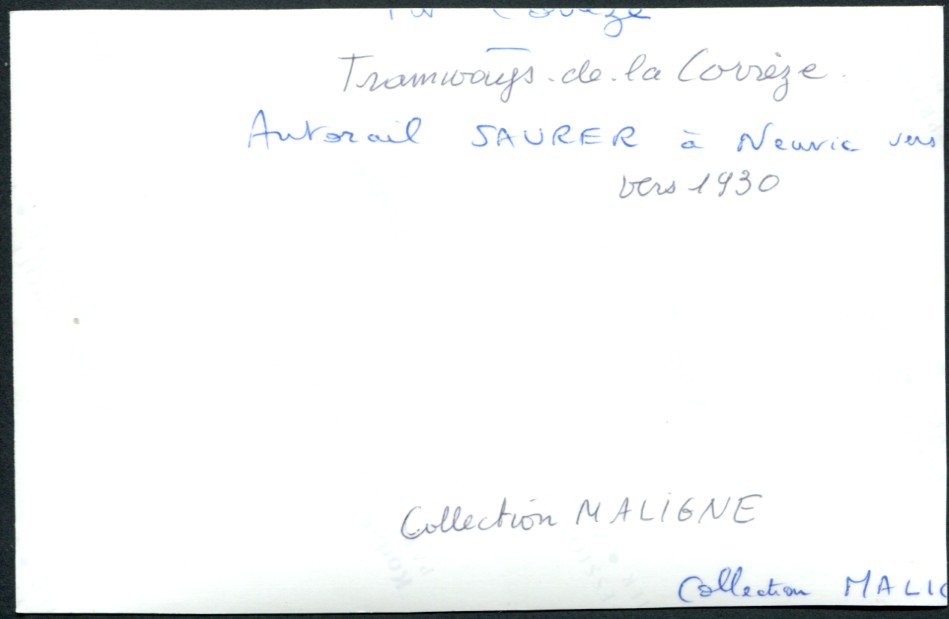 TW Corrèze
Tramways de la Corrèze.
Autorail SAURER à Neuvic vers
vers 1930
Collection MALIGNE
Collection MALIG